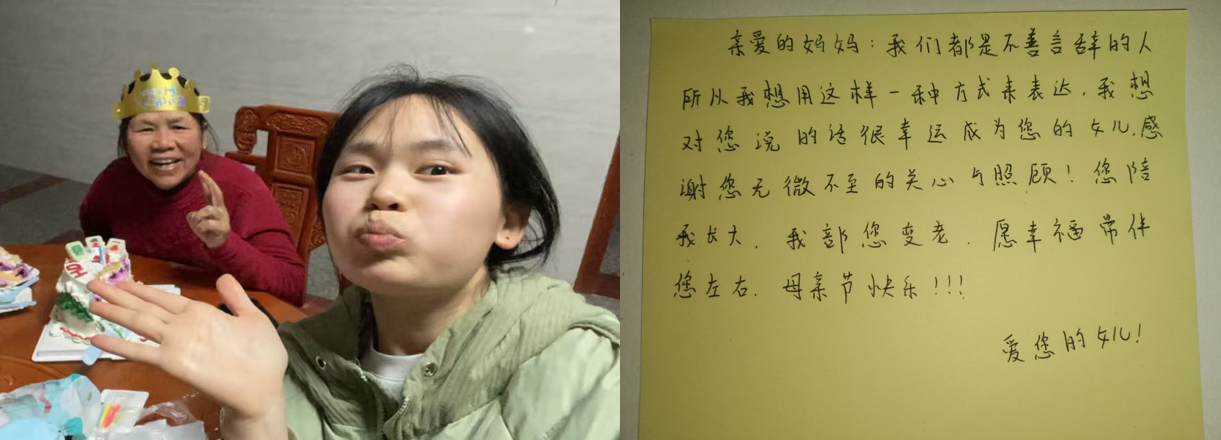 亲爱的妈妈：我们都是不善言辞的人
所以我想用这样一种方式来表达，我想
对您说的话很幸运成为您的女儿，感
谢您无微不至的关心与照顾！您陪
我长大，我部您变老，愿幸福常伴
您左右，母亲节快乐！！！
爱您的女儿！